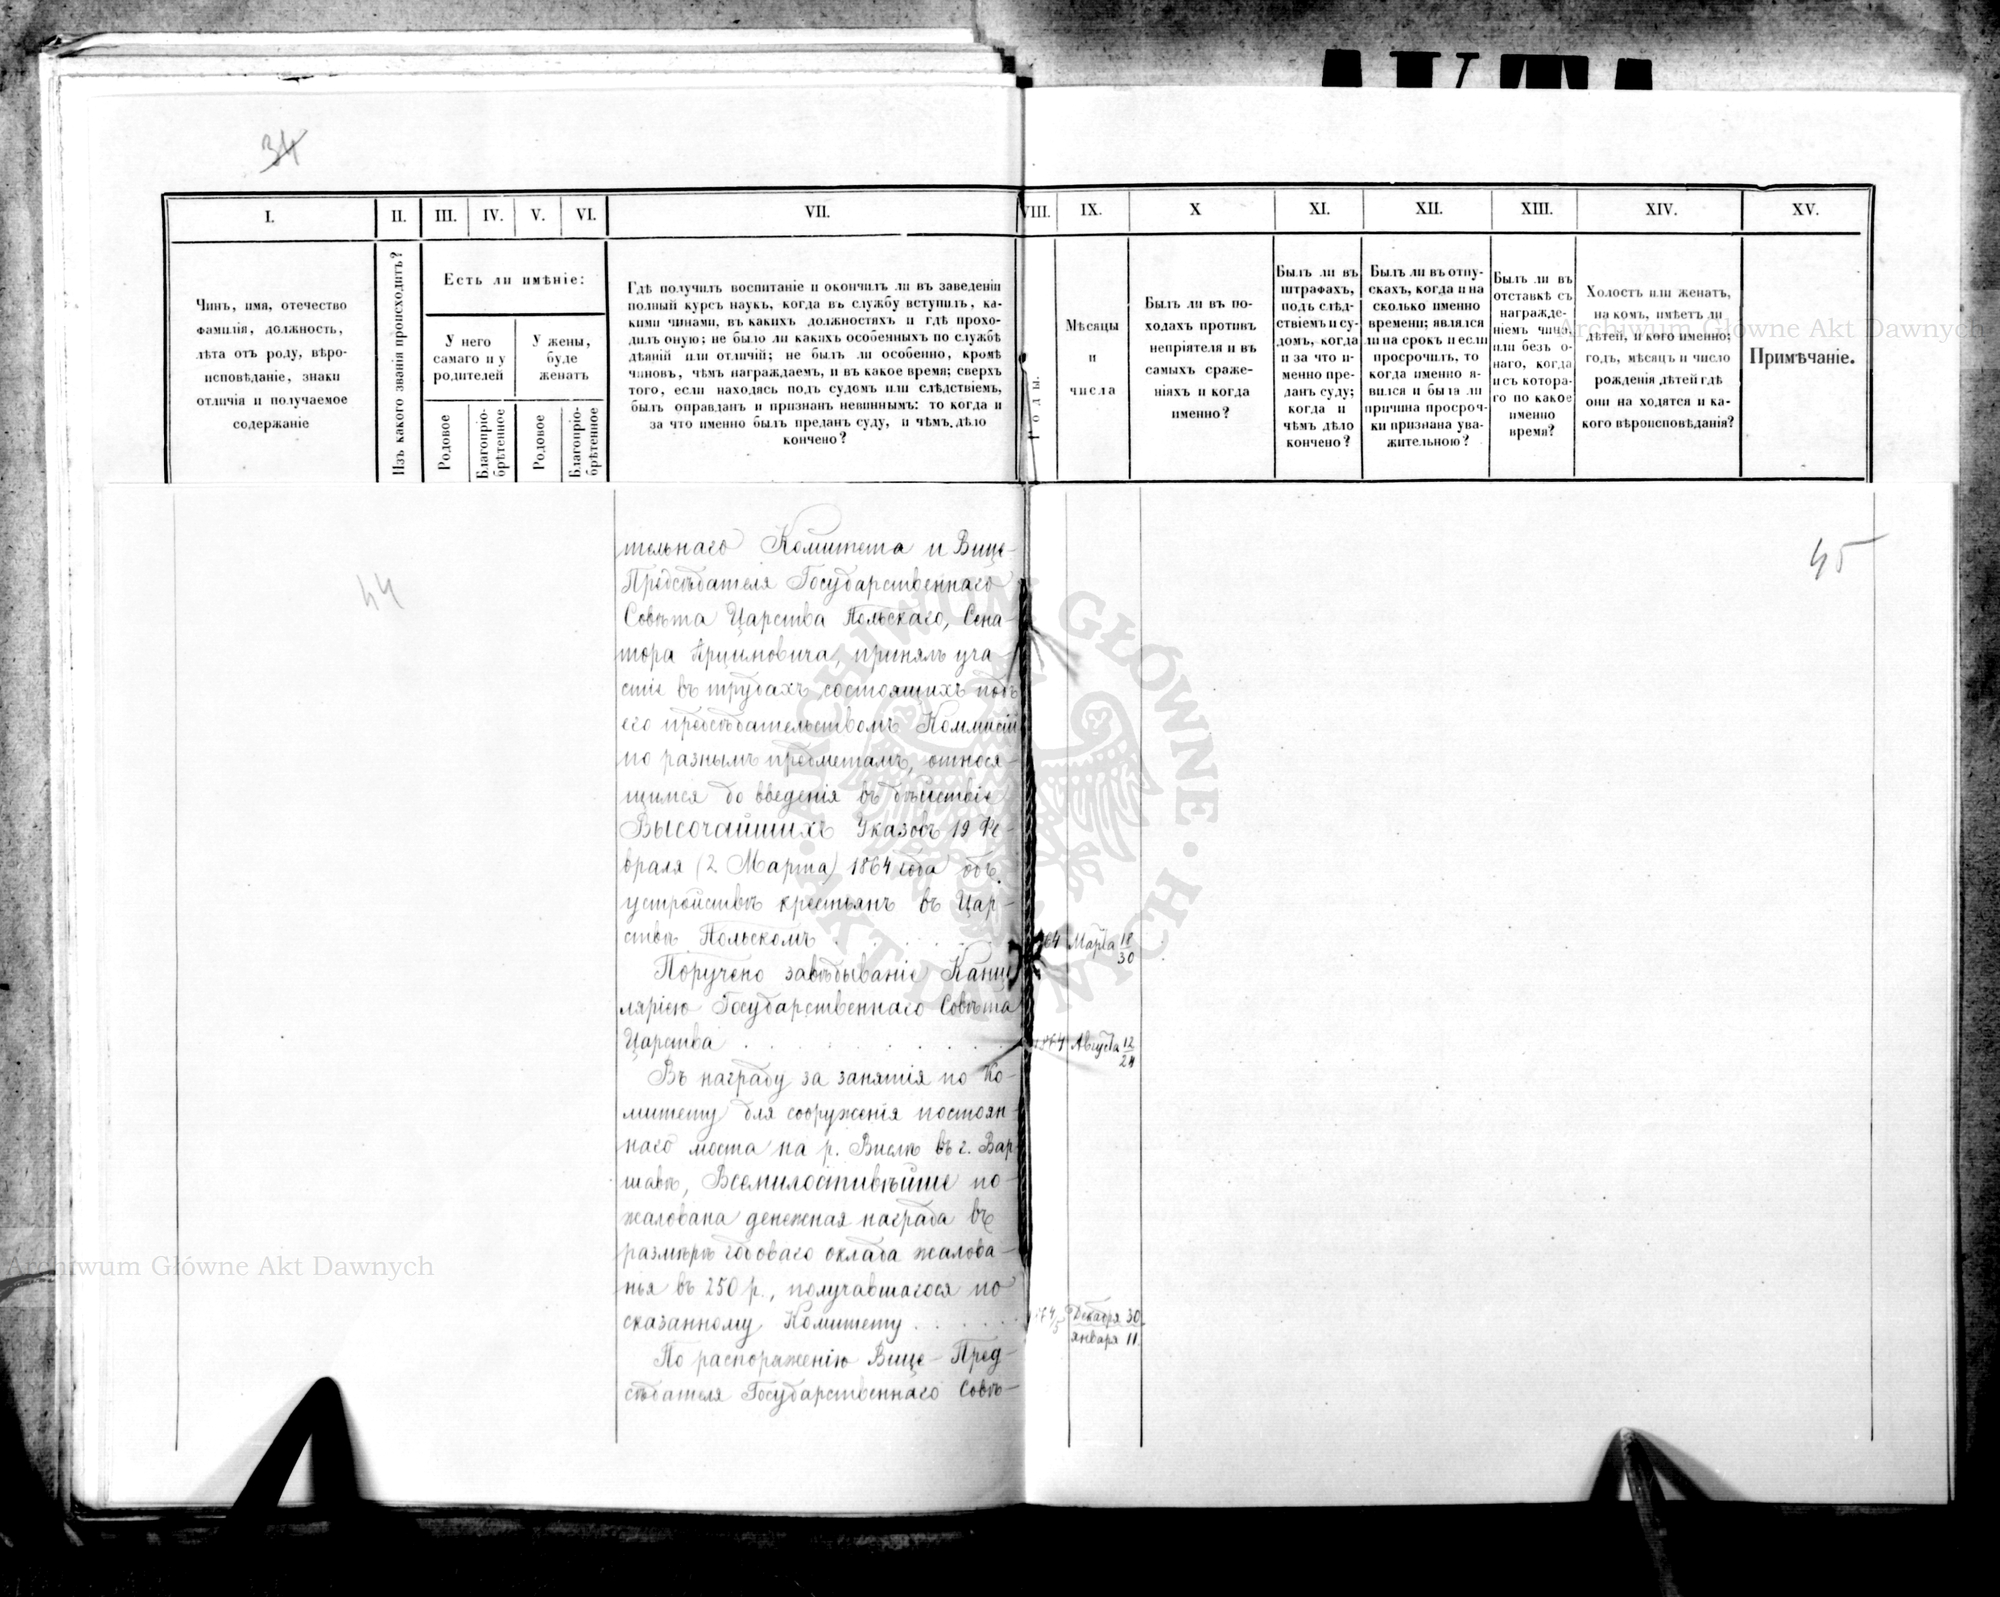 34
I.
II.
III.
IV.
V.
VI.
VII.
VIII.
IX.
X
XI.
XII.
XIII.
XIV.
XV.
Чинъ, имя, отечество
фамилія, должность,
лѣта отъ роду, вѣро-
исповѣданіе, знаки
отличія и получаемое
содержаніе
Изъ какого званія происходитъ?
Есть ли имѣніе:
У него
самаго и у
родителей
У жены,
буде
женатъ
Родовое
Благопріо-
брѣтенное
Родовое
Благопріо-
брѣтенное
Гдѣ получилъ воспитаніе и окончилъ ли въ заведеніи
полный курсъ наукъ, когда въ службу вступилъ, ка-
кими чинами, въ какихъ должностяхъ и гдѣ прохо-
дилъ оную; не было ли какихъ особенныхъ по службѣ
дѣяній или отличій; не былъ ли особенно, кромѣ
чиновъ, чѣмъ награждаемъ, и въ какое время; сверхъ
того, если находясь подъ судомъ или слѣдствіемъ,
былъ оправданъ и признанъ невиннымъ: то когда и
за что именно былъ преданъ суду, и чѣмъ дѣло
кончено?
Годы.
Мѣсяцы
и
числа
Былъ ли въ по-
ходахъ противъ
непріятеля и въ
самыхъ сраже-
ніяхъ и когда
именно?
Былъ ли въ
штрафахъ,
подъ слѣд-
ствіемъ и су-
домъ, когда
и за что и-
менно пре-
данъ суду;
когда и
чѣмъ дѣло
кончено?
Былъ ли въ отпу-
скахъ, когда и на
сколько именно
времени; являлся
ли на срокъ и если
просрочилъ, то
когда именно я-
вился и была ли
причина просроч-
ки признана ува-
жительною?
Былъ ли въ
отставкѣ съ
награжде-
ніемъ чина,
или безъ о-
наго, когда
и съ котора-
го по какое
именно
время?
Холостъ или женатъ,
на комъ, имѣетъ ли
дѣтей, и кого именно;
годъ, мѣсяцъ и число
рожденія дѣтей гдѣ
они на ходятся и ка-
кого вѣроисповѣданія?
Примѣчаніе.
44
45
тельнаго Комитета и Вице-
Предсѣдателя Государственнаго
Совѣта Царства Польскаго, Сена-
тора Арцимовича, принялъ уча-
стіе въ трудахъ состоящихъ подъ
его предсѣдательствомъ Коммисій
по разнымъ предметамъ, относя-
щимся до введенія въ дѣйствіе
Высочайшихъ Указовъ 19 Фе-
враля (2 Марта) 1864 года объ
устройствѣ крестьянъ въ Цар-
ствѣ Польскомъ . . . . . 64 Марта 18/30
Поручено завѣдываніе Канце
ляріею Государственнаго Совѣта
Царства . . . . . . . . 1864 Августа 12/24
Въ награду за занятія по Ко-
митету для сооруженія постоян-
наго моста на р. Вислѣ въ г. Вар-
шавѣ, Всемилостивѣйше по-
жалована денежная награда въ
размѣрѣ годоваго оклада жалова-
нья въ 250 р., получавшагося по
сказанному Комитету . . . . . 64/5 Декабря 30
Января 11.
По распоряженію Вице-Пред-
сѣдателя Государственнаго Совѣ-
Archiwum Główne Akt Dawnych
Archiwum Główne Akt Dawnych
ARCHIWUM GŁÓWNE AKT DAWNYCH